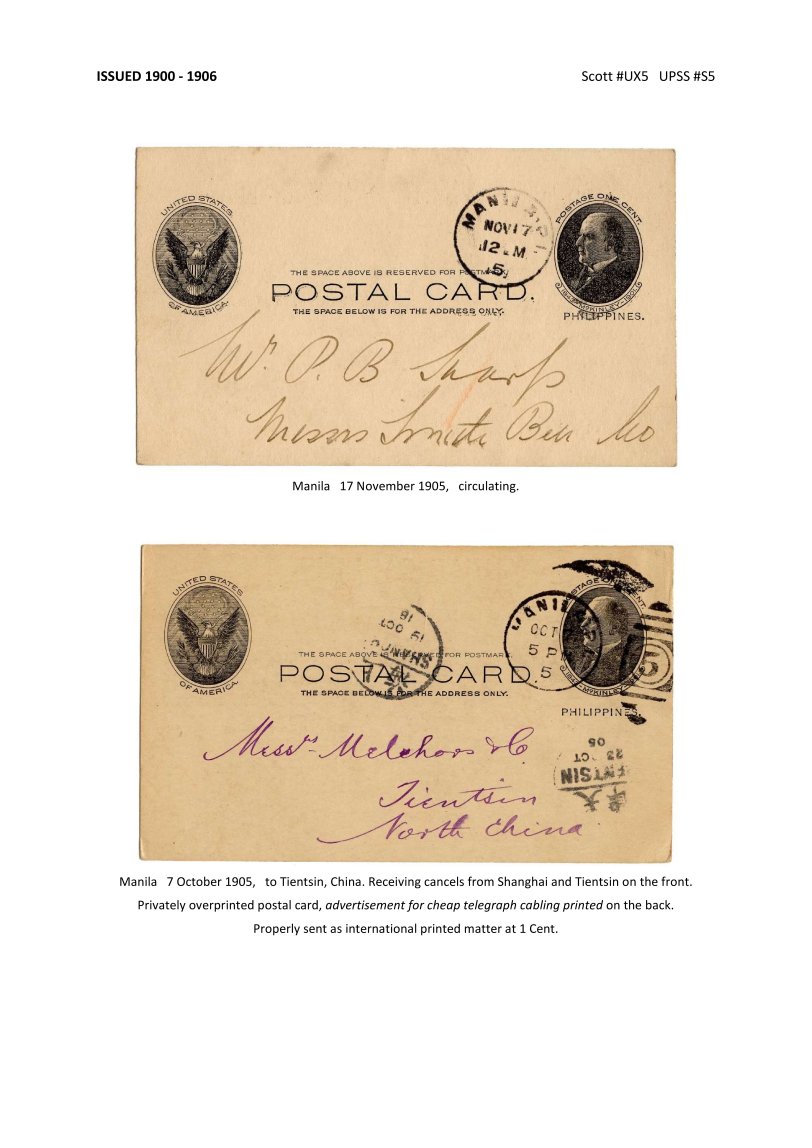 ISSUED 1900 - 1906
Scott #UX5 UPSS #S5
UNITED STATES
OF AMERICA.
MANILA, P.I.
NOV 17
12 M
5
POSTAGE ONE CENT.
1843-McKINLEY-1901
THE SPACE ABOVE IS RESERVED FOR POSTMARK
POSTAL CARD.
THE SPACE BELOW IS FOR THE ADDRESS ONLY.
PHILIPPINES.
Mr. P. B Sharp
Messrs Smith Bell Co
Manila 17 November 1905, circulating.
UNITED STATES
OF AMERICA.
SHANGHAI
19 OCT
MANILA, P.I.
OCT
5 PM
5
POSTAGE ONE CENT.
McKINLEY
THE SPACE ABOVE IS RESERVED FOR POSTMARK
POSTAL CARD.
THE SPACE BELOW IS FOR THE ADDRESS ONLY.
PHILIPPINES.
Messrs Melchors & Co
Tientsin
North China
TIENTSIN
22 OCT
05
Manila 7 October 1905, to Tientsin, China. Receiving cancels from Shanghai and Tientsin on the front.
Privately overprinted postal card, advertisement for cheap telegraph cabling printed on the back.
Properly sent as international printed matter at 1 Cent.